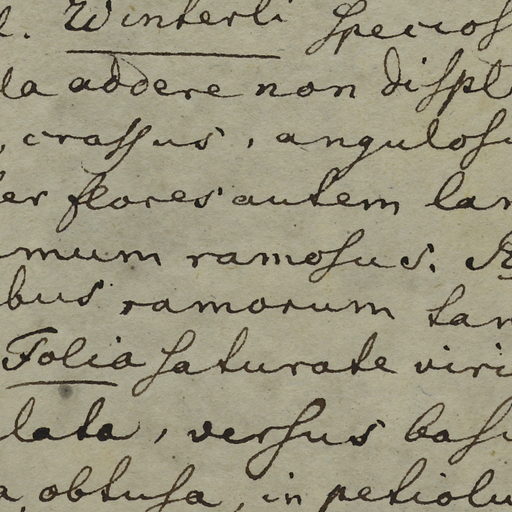 l. Winterli specios
la addere non displ
, crassus, angulosu
er flores autem lan
mum ramosus. R
bus ramorum tan
Folia saturate viri
lata, versus basi
a, obtusa, in petiolu